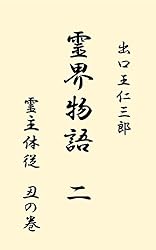 出口王仁三郎
霊界物語 二
霊主体従 丑の巻